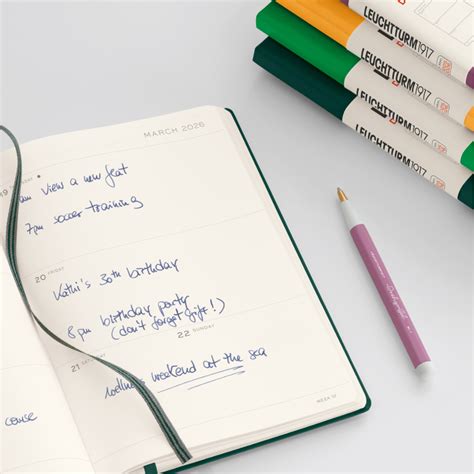 LEUCHTTURM1917
LEUCHTTURM1917
LEUCHTTURM1917
MARCH 2026
19
view a new flat
7pm soccer training
20 FRIDAY
Kathi's 30th birthday
8 pm birthday party
(don't forget gift!)
21 SATURDAY
22 SUNDAY
weekend at the sea
course
WEEK 12